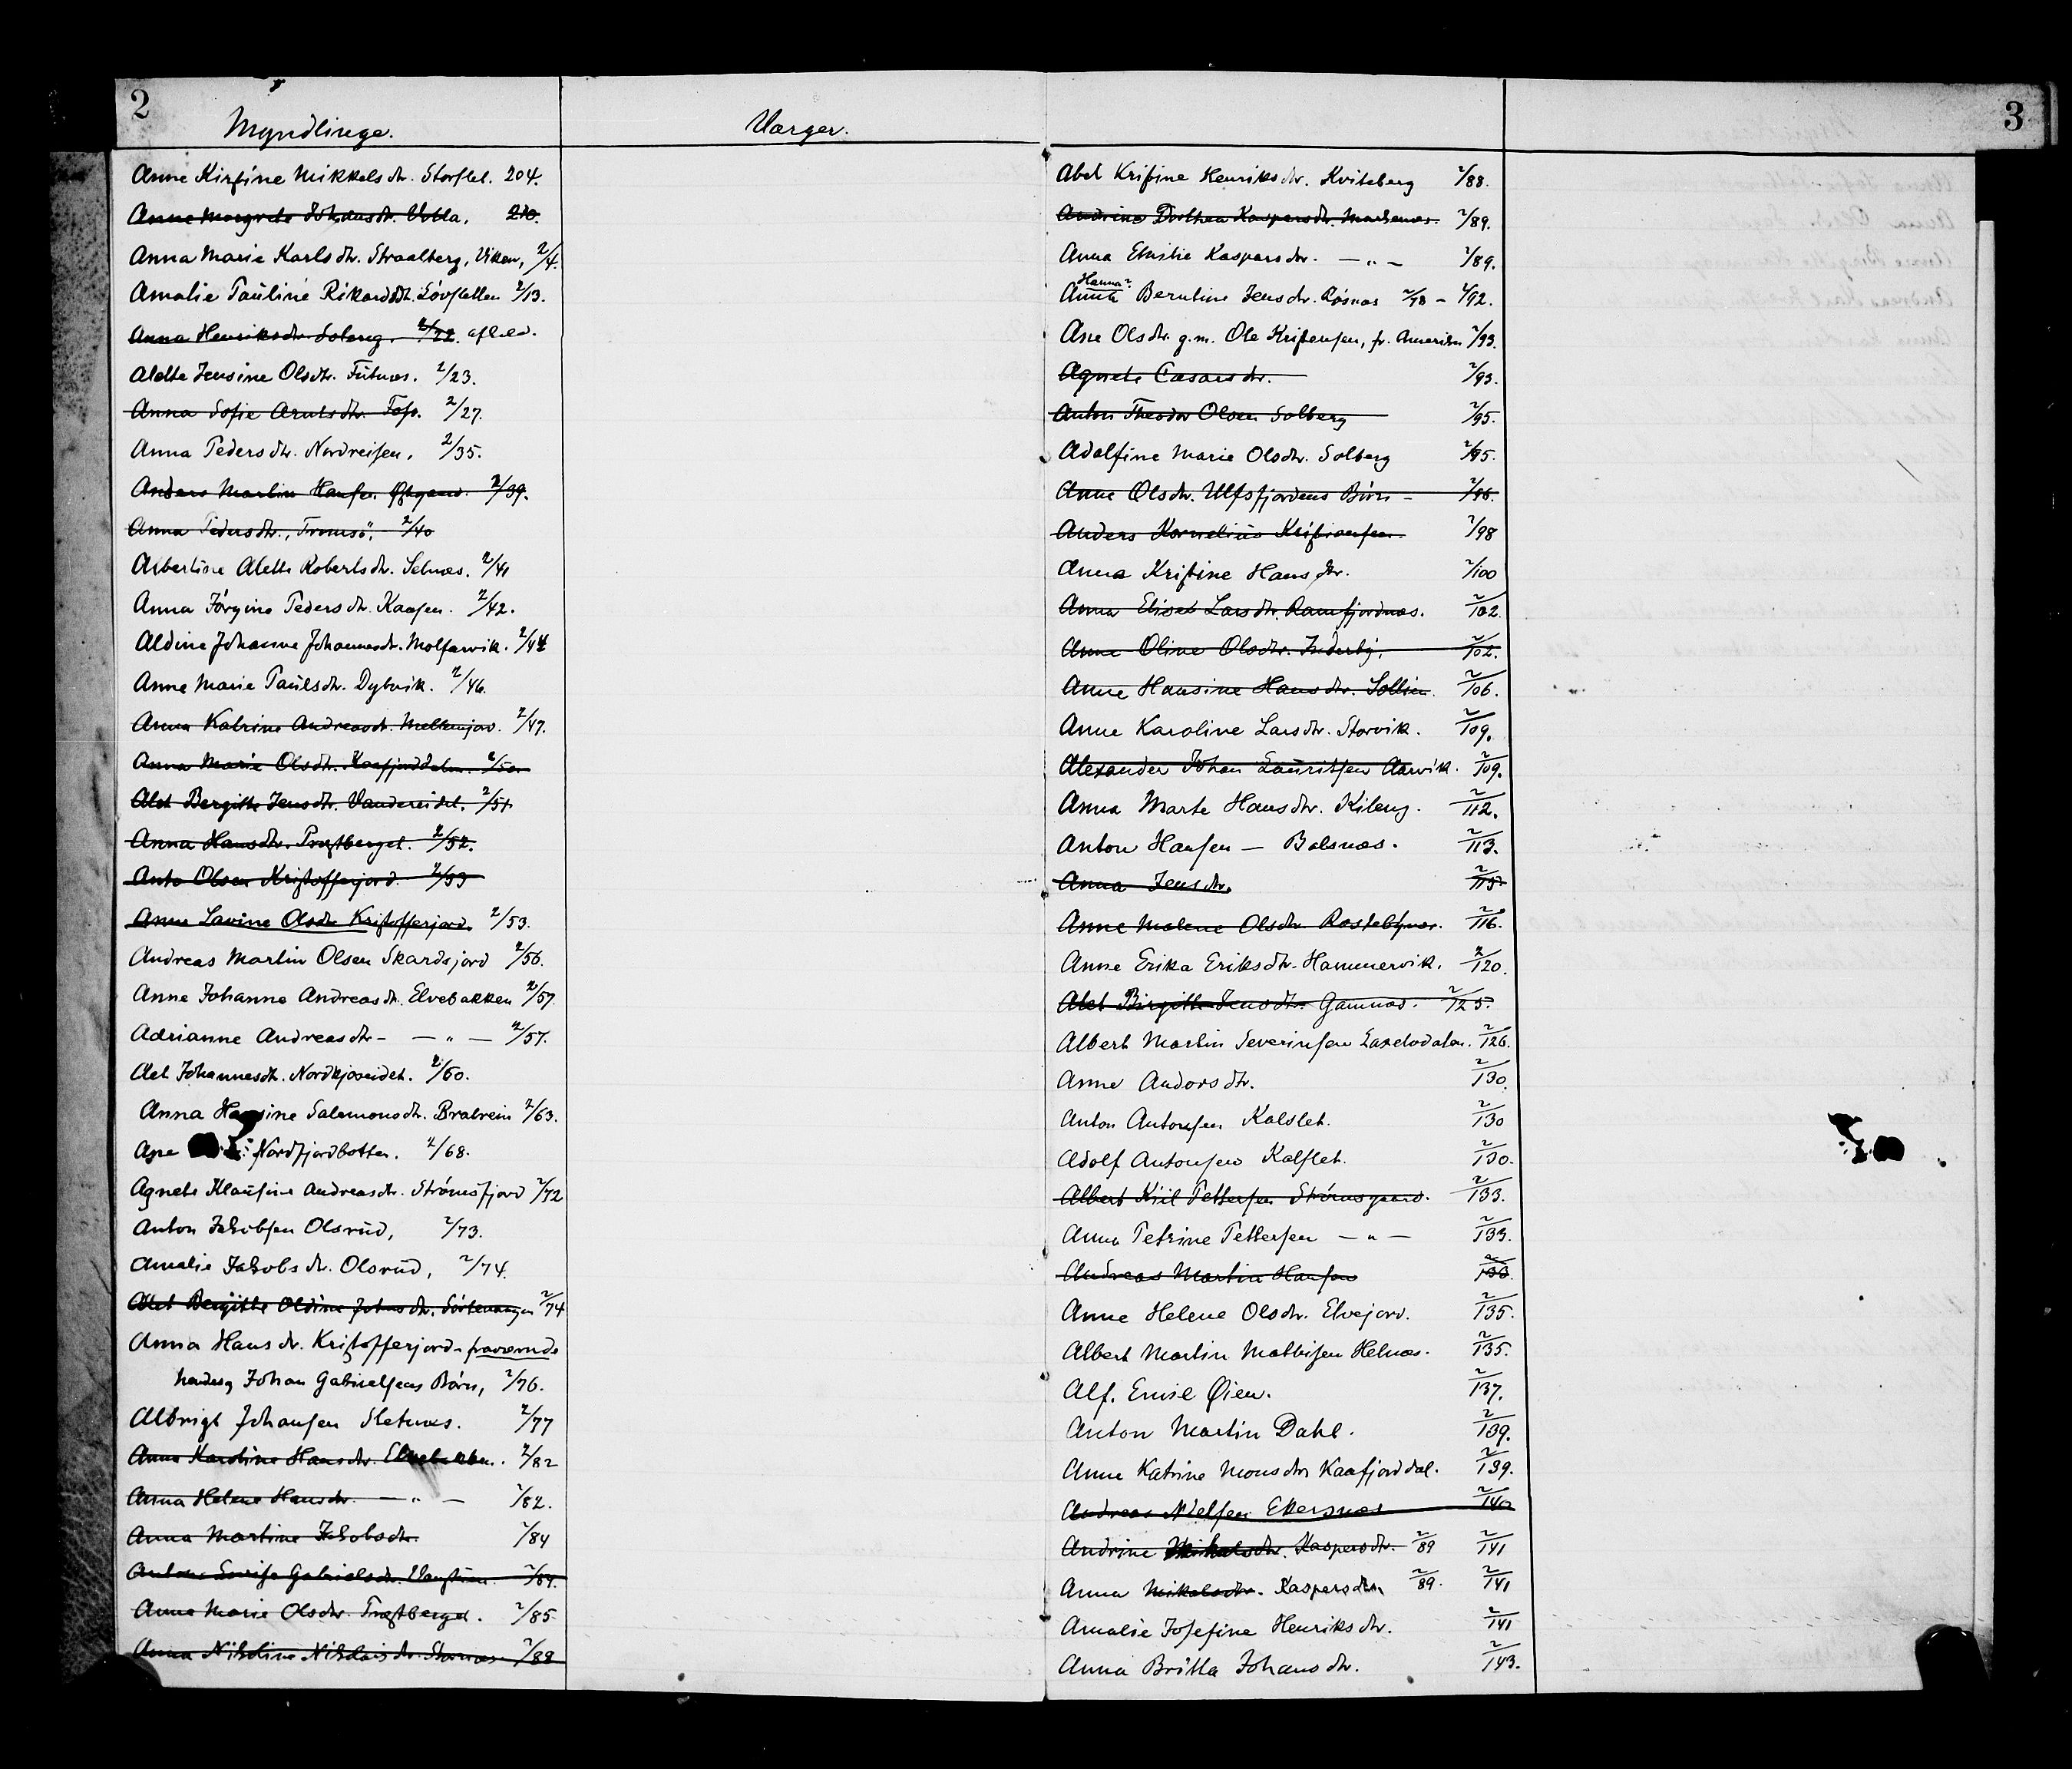 2
Myndlinge.
Værger.
Anne Kirstine Mikkelsdtr. Storslet. 204.
Anne Margrete Johansdtr. 210.
Anna Marie Karlsdtr. Straalberg, Viken, 2/4.
Amalie Pauline Rikardsdtr. Lövsletten 2/13.
Anna Henriksdtr. Soleng. 2/22. afleed.
Aletta Jensine Olsdtr. 2/23.
Anna Sofie Arntsdtr. Foss. 2/27.
Anna Pedersdtr. Nordreisen. 2/35.
Anders Martin Hansen 2/39.
Anna Pedersdtr., Tromsö, 2/40
Albertine Alette Robertsdtr. Selnæs. 2/41
Anna Jörgine Pedersdtr. Kaasen. 2/42.
Aldine Johanne Johannesdtr. Molfarvik. 2/44
Anne Marie Paulsdtr. Dybvik. 2/46.
Anna Katrine Andreasdtr. 2/47.
Anna Marie Olsdtr. Kaafjorddalen. 2/50.
Alet Bergitte Jensdtr. Vandereidet. 2/51.
Anna Hansdtr. Præstberget. 2/52.
Anto Olsen Kristofferjord. 2/53
Anne Lavine Olsdtr. Kristofferjord. 2/53.
Andreas Martin Olsen Skardsjord 2/56.
Anne Johanne Andreasdtr. Elvebakken 2/57.
Adrianne Andreasdtr. — „ — 2/57.
Alet Johannesdtr. Nordkjoseidet. 2/60.
Anna Hansine Salamonsdtr. Bralrein 2/63.
Ane Nordfjordbotten. 2/68.
Agnete Klausine Andreasdtr. Strömsfjord 2/72
Anton Jakobsen Olsrud, 2/73.
Amalie Jakobsdtr. Olsrud, 2/74.
Alet Bergitte Oldine Johnsdtr. 2/74
Anna Hansdtr. Kristofferjord - fraværende
Johan Gabrielsens Börn, 2/76.
Albrigt Johansen Sletnæs. 2/77
Anna Karoline Hansdtr. Elvebakken. 2/82
Anna Helene Hansdtr. — „ — 2/82.
Anna Martine Jakobsdtr. 2/84
Gabrielsdtr. 2/84.
Anne Marie Olsdtr. Præstberget. 2/85
Anna Nikoline Nikolaisdtr. 2/88
3
Abel Kristine Henriksdtr. Kviteberg 2/88.
Andrine Dorthea Kaspersdtr. 2/89.
Anna Emilie Kaspersdtr. — „ — 2/89.
Hanna?
Anna Berntine Jensdtr. Rösnæs 2/78 - 2/92.
Ane Olsdtr. g.m. Ole Kristensen, fr. Amerika 2/93.
Agnete Cæsarsdtr. 2/93.
Anton Theodor Olsen Solberg 2/95.
Adolfine Marie Olsdtr. Solberg 2/95.
Anne Olsdtr. Ulfsfjordens Börn - 2/96.
Anders Kornelius Kristiansen. 2/98
Anna Kristine Hansdtr. 2/100
Anna Elise Larsdtr. Ramfjordnæs. 2/102.
Anne Oline Olsdtr. Inderby. 2/102.
Anne Hansine Hansdtr. Sollien. 2/106.
Anne Karoline Larsdtr. Storvik. 2/109.
Alexander Johan Lauritsen Aarvik. 2/109.
Anna Marte Hansdtr. Kileng. 2/112.
Anton Hansen — Balsnæs. 2/113.
Anna Jensdtr. 2/115
Anne Malene Olsdtr. 2/116.
Anne Erika Eriksdtr. Hammervik. 2/120.
Alet Birgitte Jensdtr. Gamnæs. 2/125.
Albert Martin Severinsen Lakselvdalen. 2/126.
Anne Andorsdtr. 2/130.
Anton Antonsen Kalslet. 2/130
Adolf Antonsen Kalslet. 2/130.
Albert Kiil Pettersen Strömsgaard. 2/133.
Anna Petrine Pettersen — „ — 2/133.
Andreas Martin Hansen 2/133.
Anne Helene Olsdtr. Elvejord. 2/135.
Albert Martin Mathisen Helnæs. 2/135.
Alf. Emil Øien. 2/137.
Anton Martin Dahl. 2/139.
Anne Katrine Monsdtr. Kaafjorddal. 2/139.
Andreas Nielsen Ekersnæs 2/140
Andrine Mikalsdtr. Kaspersdtr. 2/89 2/141
Anna Mikalsdtr. Kaspersdtr. 2/89. 2/141
Amalie Josefine Henriksdtr. 2/141
Anna Britta Johansdtr. 2/143.